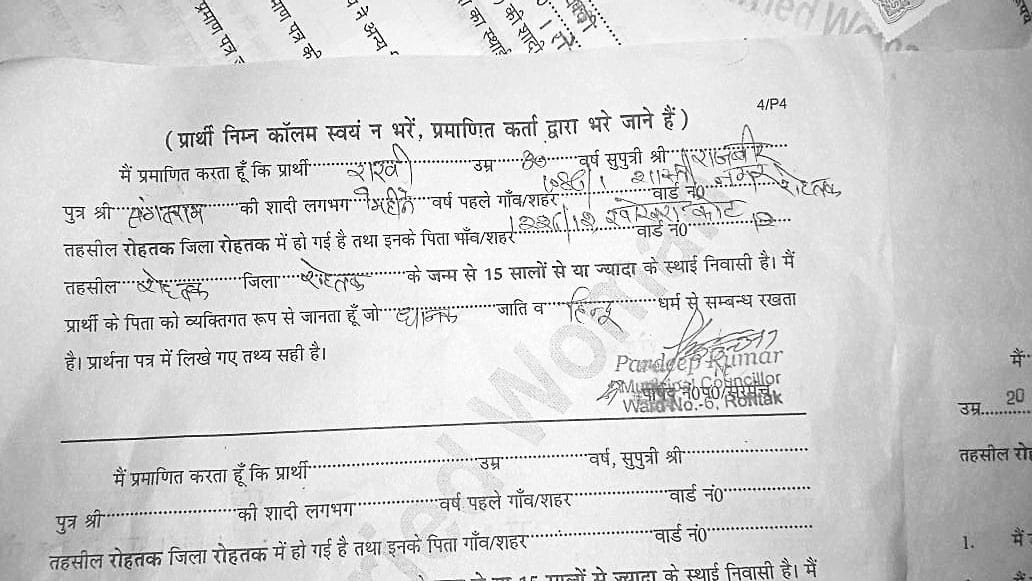 प्रमाण पत्र
ने अन्य
का स्थाई
की शादी
4/P4
( प्रार्थी निम्न कॉलम स्वयं न भरें, प्रमाणित कर्ता द्वारा भरे जाने हैं )
मैं प्रमाणित करता हूँ कि प्रार्थी राखी उम्र वर्ष सुपुत्री श्री राजबीर
पुत्र श्री की शादी लगभग महीने वर्ष पहले गाँव/शहर वार्ड नं0 रोहतक
तहसील रोहतक जिला रोहतक में हो गई है तथा इनके पिता गाँव/शहर वार्ड नं0
तहसील रोहतक जिला रोहतक के जन्म से 15 सालों से या ज्यादा के स्थाई निवासी है। मैं
प्रार्थी के पिता को व्यक्तिगत रूप से जानता हूँ जो धानक जाति व हिन्दू धर्म से सम्बन्ध रखता
है। प्रार्थना पत्र में लिखे गए तथ्य सही है।
Pardeep Kumar
Municipal Councillor
पार्षद न0प0/सरपंच
Ward No.-6, Rohtak
मैं प्रमाणित करता हूँ कि प्रार्थी उम्र वर्ष, सुपुत्री श्री
पुत्र श्री की शादी लगभग वर्ष पहले गाँव/शहर वार्ड नं0
तहसील रोहतक जिला रोहतक में हो गई है तथा इनके पिता गाँव/शहर वार्ड नं0
15 सालों से या ज्यादा के स्थाई निवासी है। मैं
मैं
उम्र 20
तहसील
1. मैं